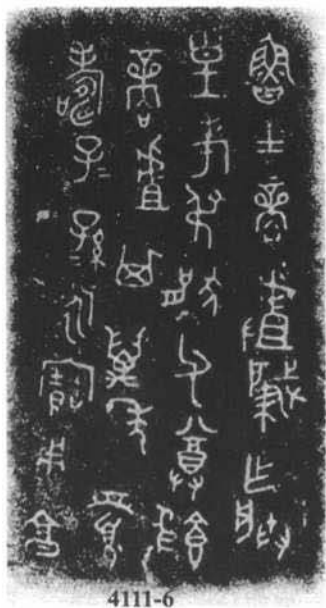 魯士商𠭯肇乍朕
皇考弔猒父𬯚𣪘
商𠭯其萬年眉
壽子=孫=永寶用享
4111-6